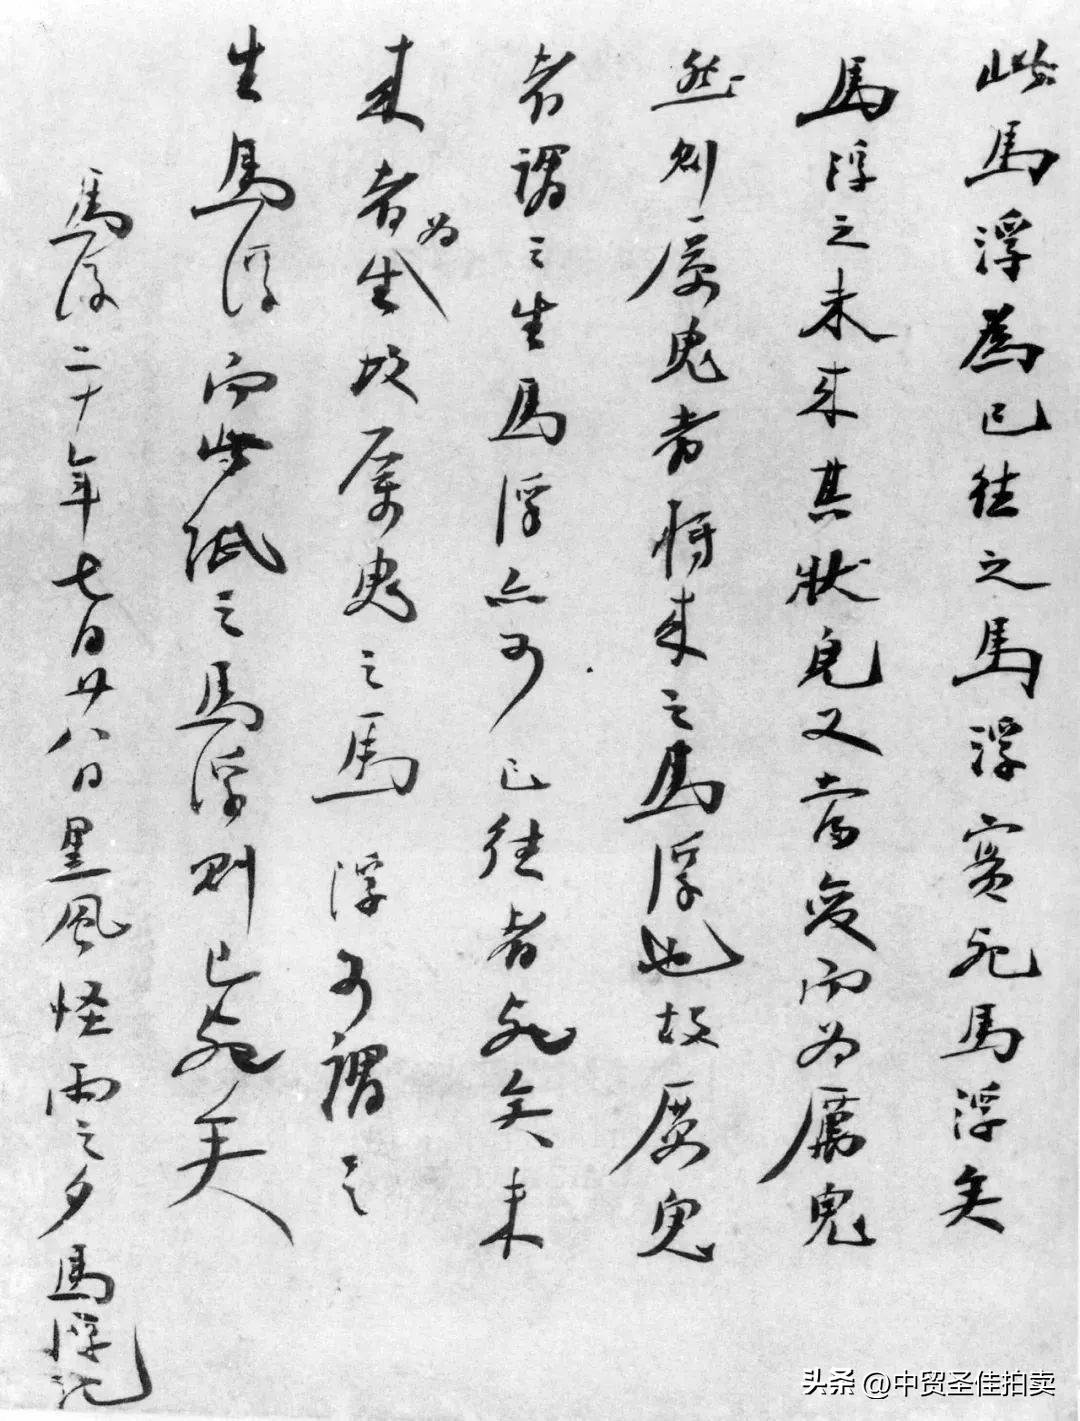 此馬浮為已往之馬浮實死馬浮矣
馬浮之未来其狀皃又當變而为厲鬼
然則厲鬼者將来之馬浮也故厲鬼
者謂之生馬浮亦可已往者死矣未
来者为生故厲鬼之馬浮可謂之
生馬浮而此紙之馬浮則已死矣
馬浮二十年七月廿八日黑風怪雨之夕馬浮記
头条 @中贸圣佳拍卖